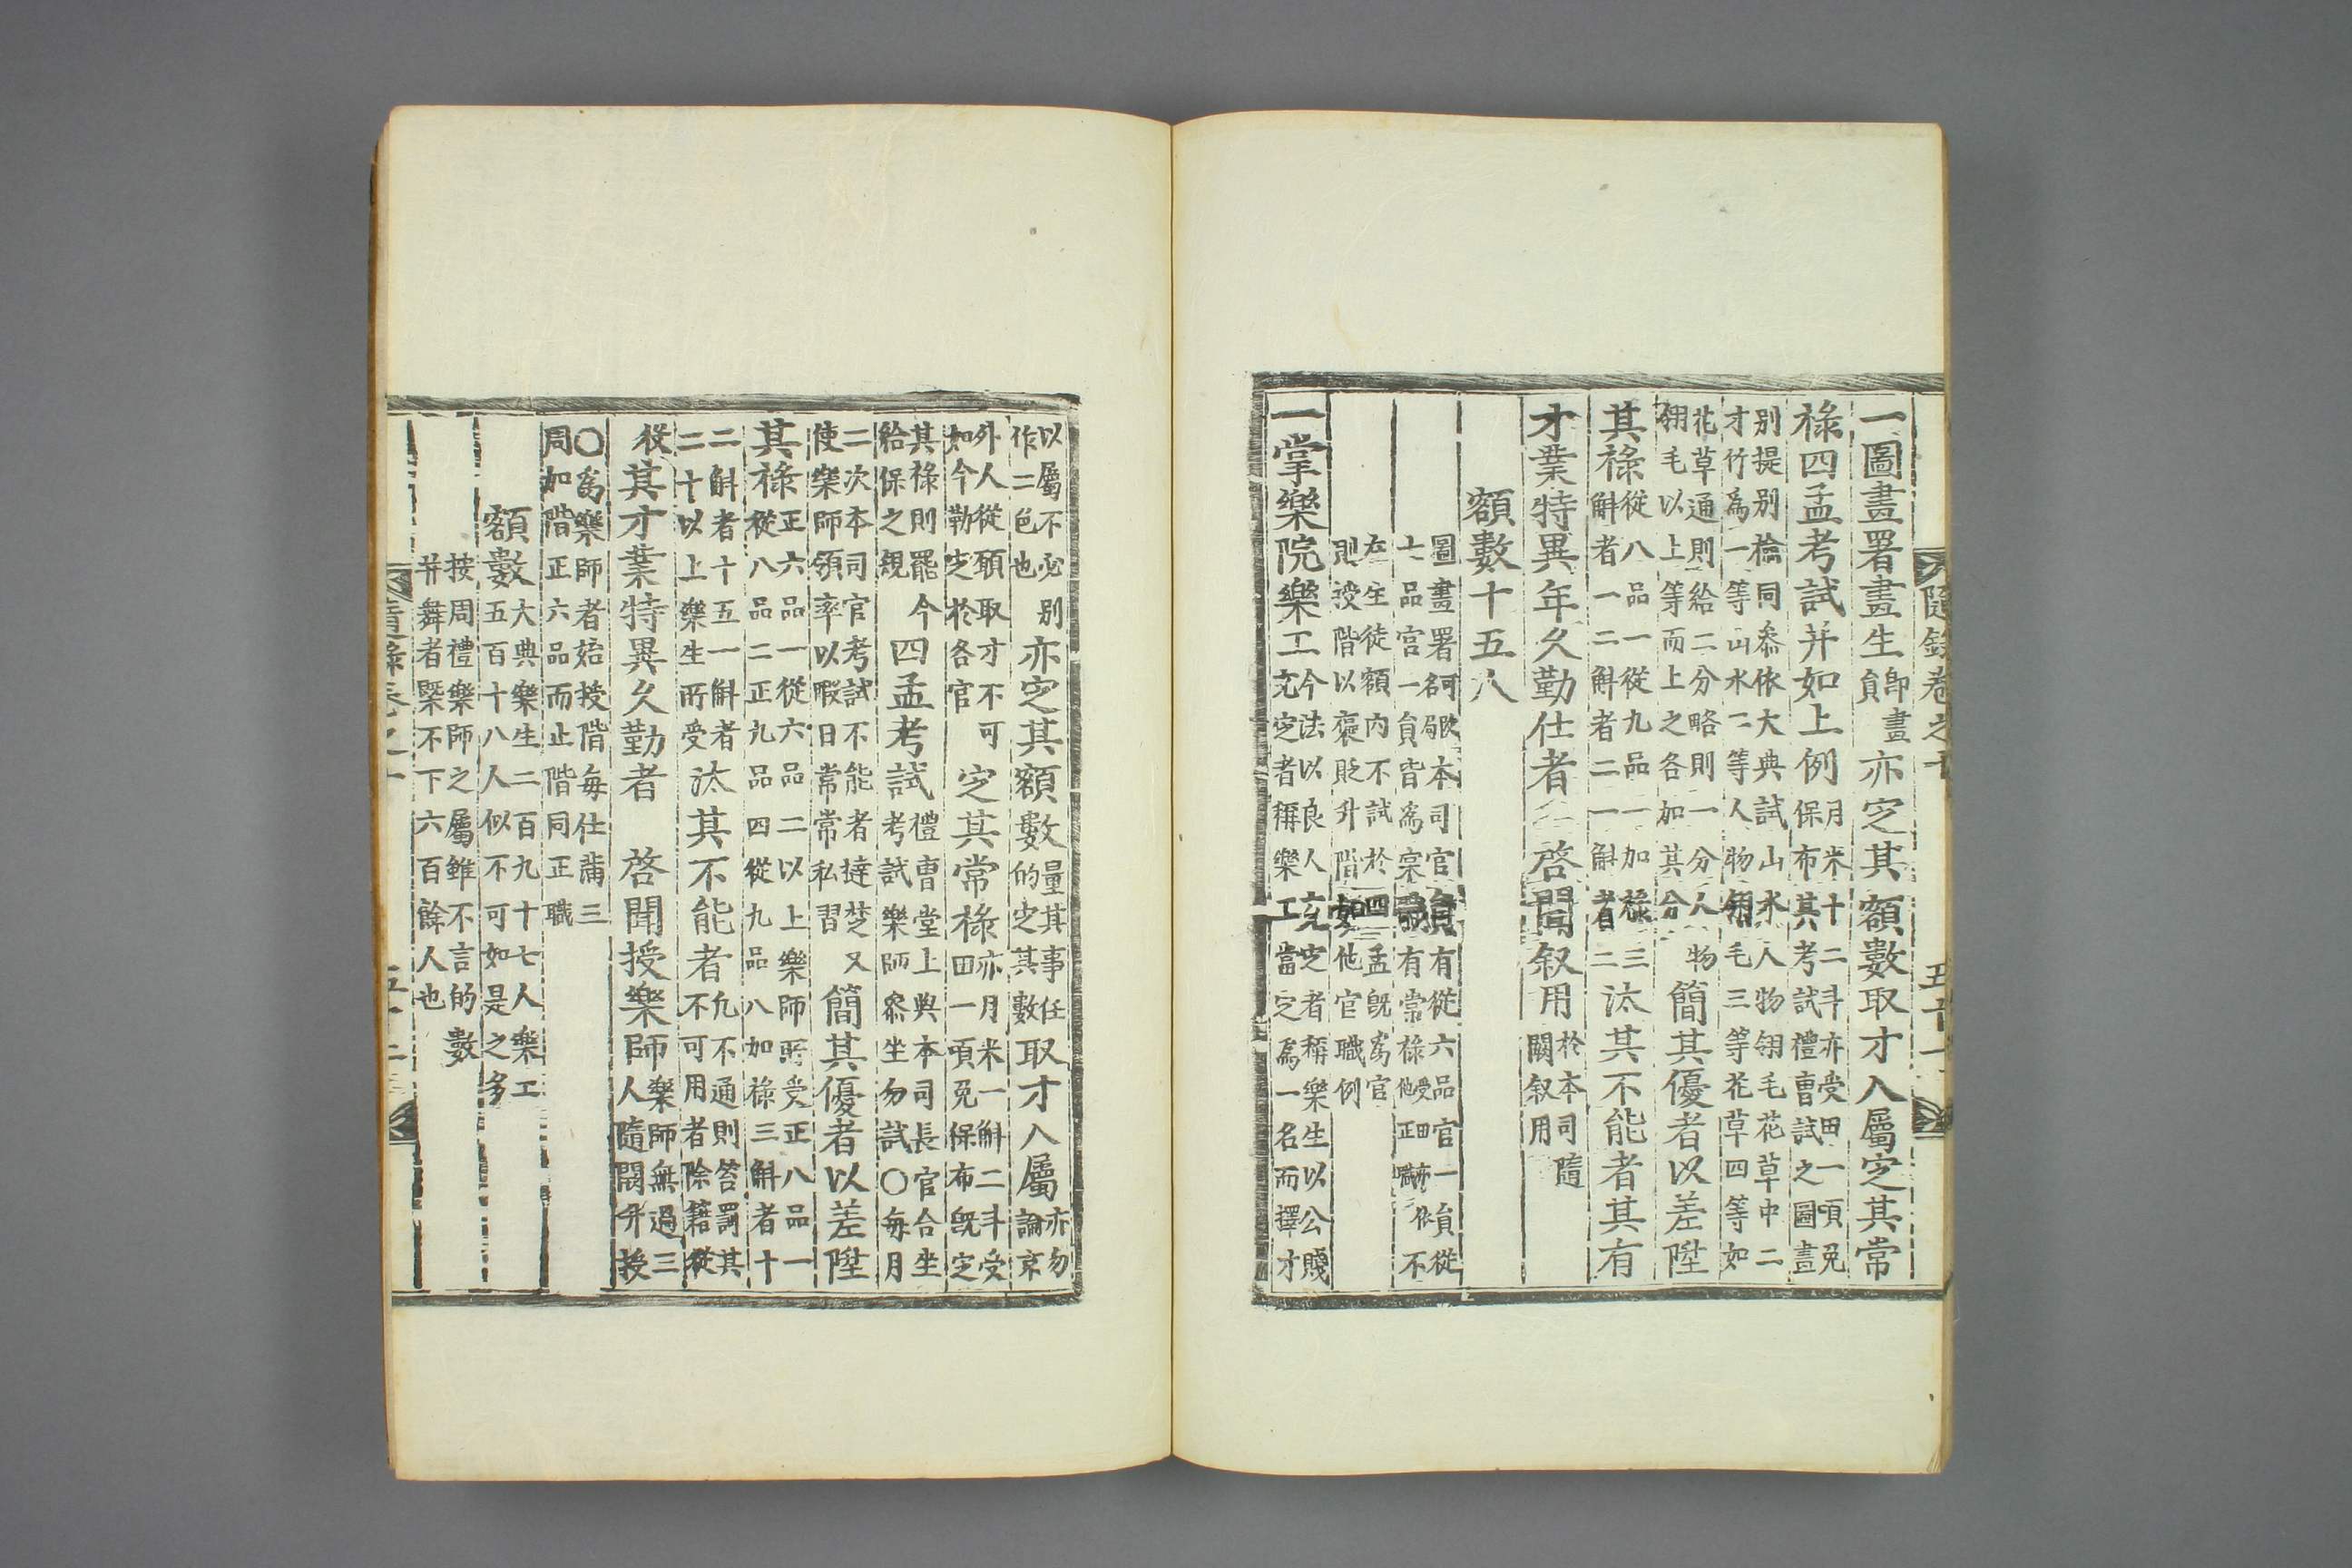 隨錄卷之十 五十一
一圖畫署畫生即畫員亦㝎其額數取才入屬㝎其常
祿四孟考試并如上例月米十二斗亦受田一頃免
保布其考試禮曹試之圖畫
別提別檢同叅依大典試山水人物翎毛花草中二
才竹爲一等山水二等人物翎毛三等花草四等如
花草通則給二分略則一分人物
翎毛以上等而上之各加其分簡其優者以差陞
其祿從八品一從九品一加祿三
斛者一二斛者二一斛者二汰其不能者其有
才業特異年久勤仕者 啓聞叙用於本司隨
闕叙用
額數十五人
圖畫署名可改局本司官員有從六品官一員從
七品官一員皆爲宲職有常祿受田亦依他正職不
在生徒額内不試於四孟旣爲官
則授階以褒貶升階如他官職例
一掌樂院樂工今法以良人充㝎者稱樂生以公賤
充㝎者稱樂工當㝎爲一名而擇才
以屬不必別
作二色也亦㝎其額數量其事任
的㝎其數取才入屬亦勿
論京
外人從願取才不可
如今勒㝎於各官㝎其常祿亦月米一斛二斗受
田一頃免保布旣㝎
其祿則罷今
給保之規四孟考試禮曹堂上與本司長官合坐
考試樂師叅坐勿試○每月
二次本司官考試不能者撻楚又
使樂師領率以暇日常常私習簡其優者以差陞
其祿正六品一從六品二以上樂師所受正八品一
從八品二正九品四從九品八加祿三斛者十
二斛者十五一斛者
二十以上樂生所受汰其不能者凡不通則笞罰其
不可用者除籍從
役其才業特異久勤者 啓聞授樂師樂師無過三
人隨闕升授
○爲樂師者始授階每仕滿三
周加階正六品而止階同正職
額數大典樂生二百九十七人樂工
五百十八人似不可如是之多
按周禮樂師之屬雖不言的數
并舞者槩不下六百餘人也
隨錄卷之十 五十二